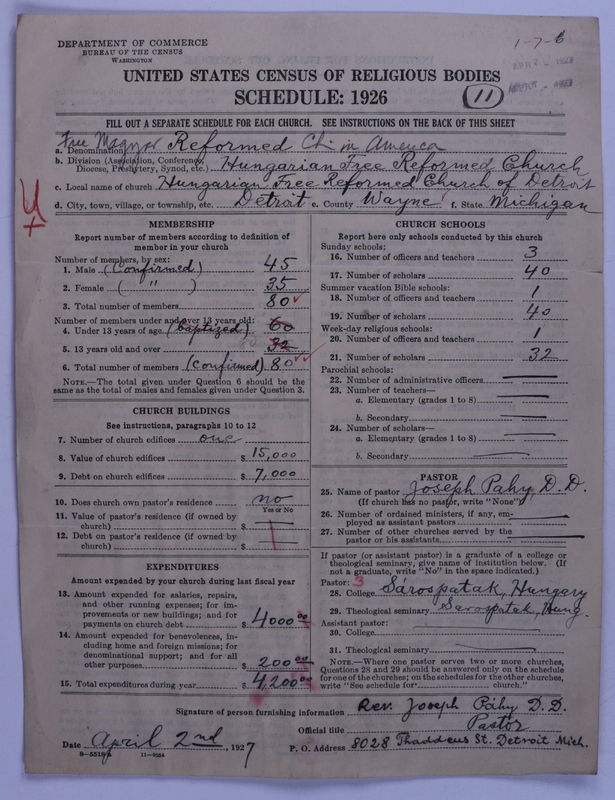 DEPARTMENT OF COMMERCE
BUREAU OF THE CENSUS
WASHINGTON
1-7-6
UNITED STATES CENSUS OF RELIGIOUS BODIES
SCHEDULE: 1926
11
FILL OUT A SEPARATE SCHEDULE FOR EACH CHURCH. SEE INSTRUCTIONS ON THE BACK OF THIS SHEET
a. Denomination Free Magyar Reformed Ch in America
b. Division (Association, Conference, Diocese, Presbytery, Synod, etc.) Hungarian Free Reformed Church
c. Local name of church Hungarian Free Reformed Church of Detroit
d. City, town, village, or township, etc. Detroit e. County Wayne f. State Michigan
MEMBERSHIP
Report number of members according to definition of
member in your church
Number of members, by sex:
1. Male (Confirmed) 45
2. Female ( " ) 35
3. Total number of members 80
Number of members under and over 13 years old:
4. Under 13 years of age (baptized) 60
5. 13 years old and over 32
6. Total number of members (Confirmed) 80
NOTE.—The total given under Question 6 should be the
same as the total of males and females given under Question 3.
CHURCH BUILDINGS
See instructions, paragraphs 10 to 12
7. Number of church edifices one
8. Value of church edifices $ 15,000
9. Debt on church edifices $ 7,000
10. Does church own pastor's residence no
Yes or No
11. Value of pastor's residence (if owned by
church) $
12. Debt on pastor's residence (if owned by
church) $
EXPENDITURES
Amount expended by your church during last fiscal year
13. Amount expended for salaries, repairs,
and other running expenses; for im-
provements or new buildings; and for
payments on church debt $ 4000 00
14. Amount expended for benevolences, in-
cluding home and foreign missions; for
denominational support; and for all
other purposes $ 200 00
15. Total expenditures during year $ 4,200 00
CHURCH SCHOOLS
Report here only schools conducted by this church
Sunday schools:
16. Number of officers and teachers 3
17. Number of scholars 40
Summer vacation Bible schools:
18. Number of officers and teachers 1
19. Number of scholars 40
Week-day religious schools:
20. Number of officers and teachers 1
21. Number of scholars 32
Parochial schools:
22. Number of administrative officers
23. Number of teachers—
a. Elementary (grades 1 to 8)
b. Secondary
24. Number of scholars—
a. Elementary (grades 1 to 8)
b. Secondary
PASTOR
25. Name of pastor Joseph Pahy D. D.
(If church has no pastor, write "None")
26. Number of ordained ministers, if any, em-
ployed as assistant pastors
27. Number of other churches served by the
pastor or his assistants
If pastor (or assistant pastor) is a graduate of a college or
theological seminary, give name of institution below. (If
not a graduate, write "No" in the space indicated.)
Pastor: 3
28. College Sarospatak, Hungary
29. Theological seminary Sarospatak, Hung.
Assistant pastor:
30. College
31. Theological seminary
NOTE.—Where one pastor serves two or more churches,
Questions 28 and 29 should be answered only on the schedule
for one of the churches; on the schedules for the other churches,
write "See schedule for church."
Signature of person furnishing information Rev. Joseph Pahy D. D.
Official title Pastor
Date April 2nd, 1927
P. O. Address 8028 Thaddeus St. Detroit Mich.
8—5519a 11—9054